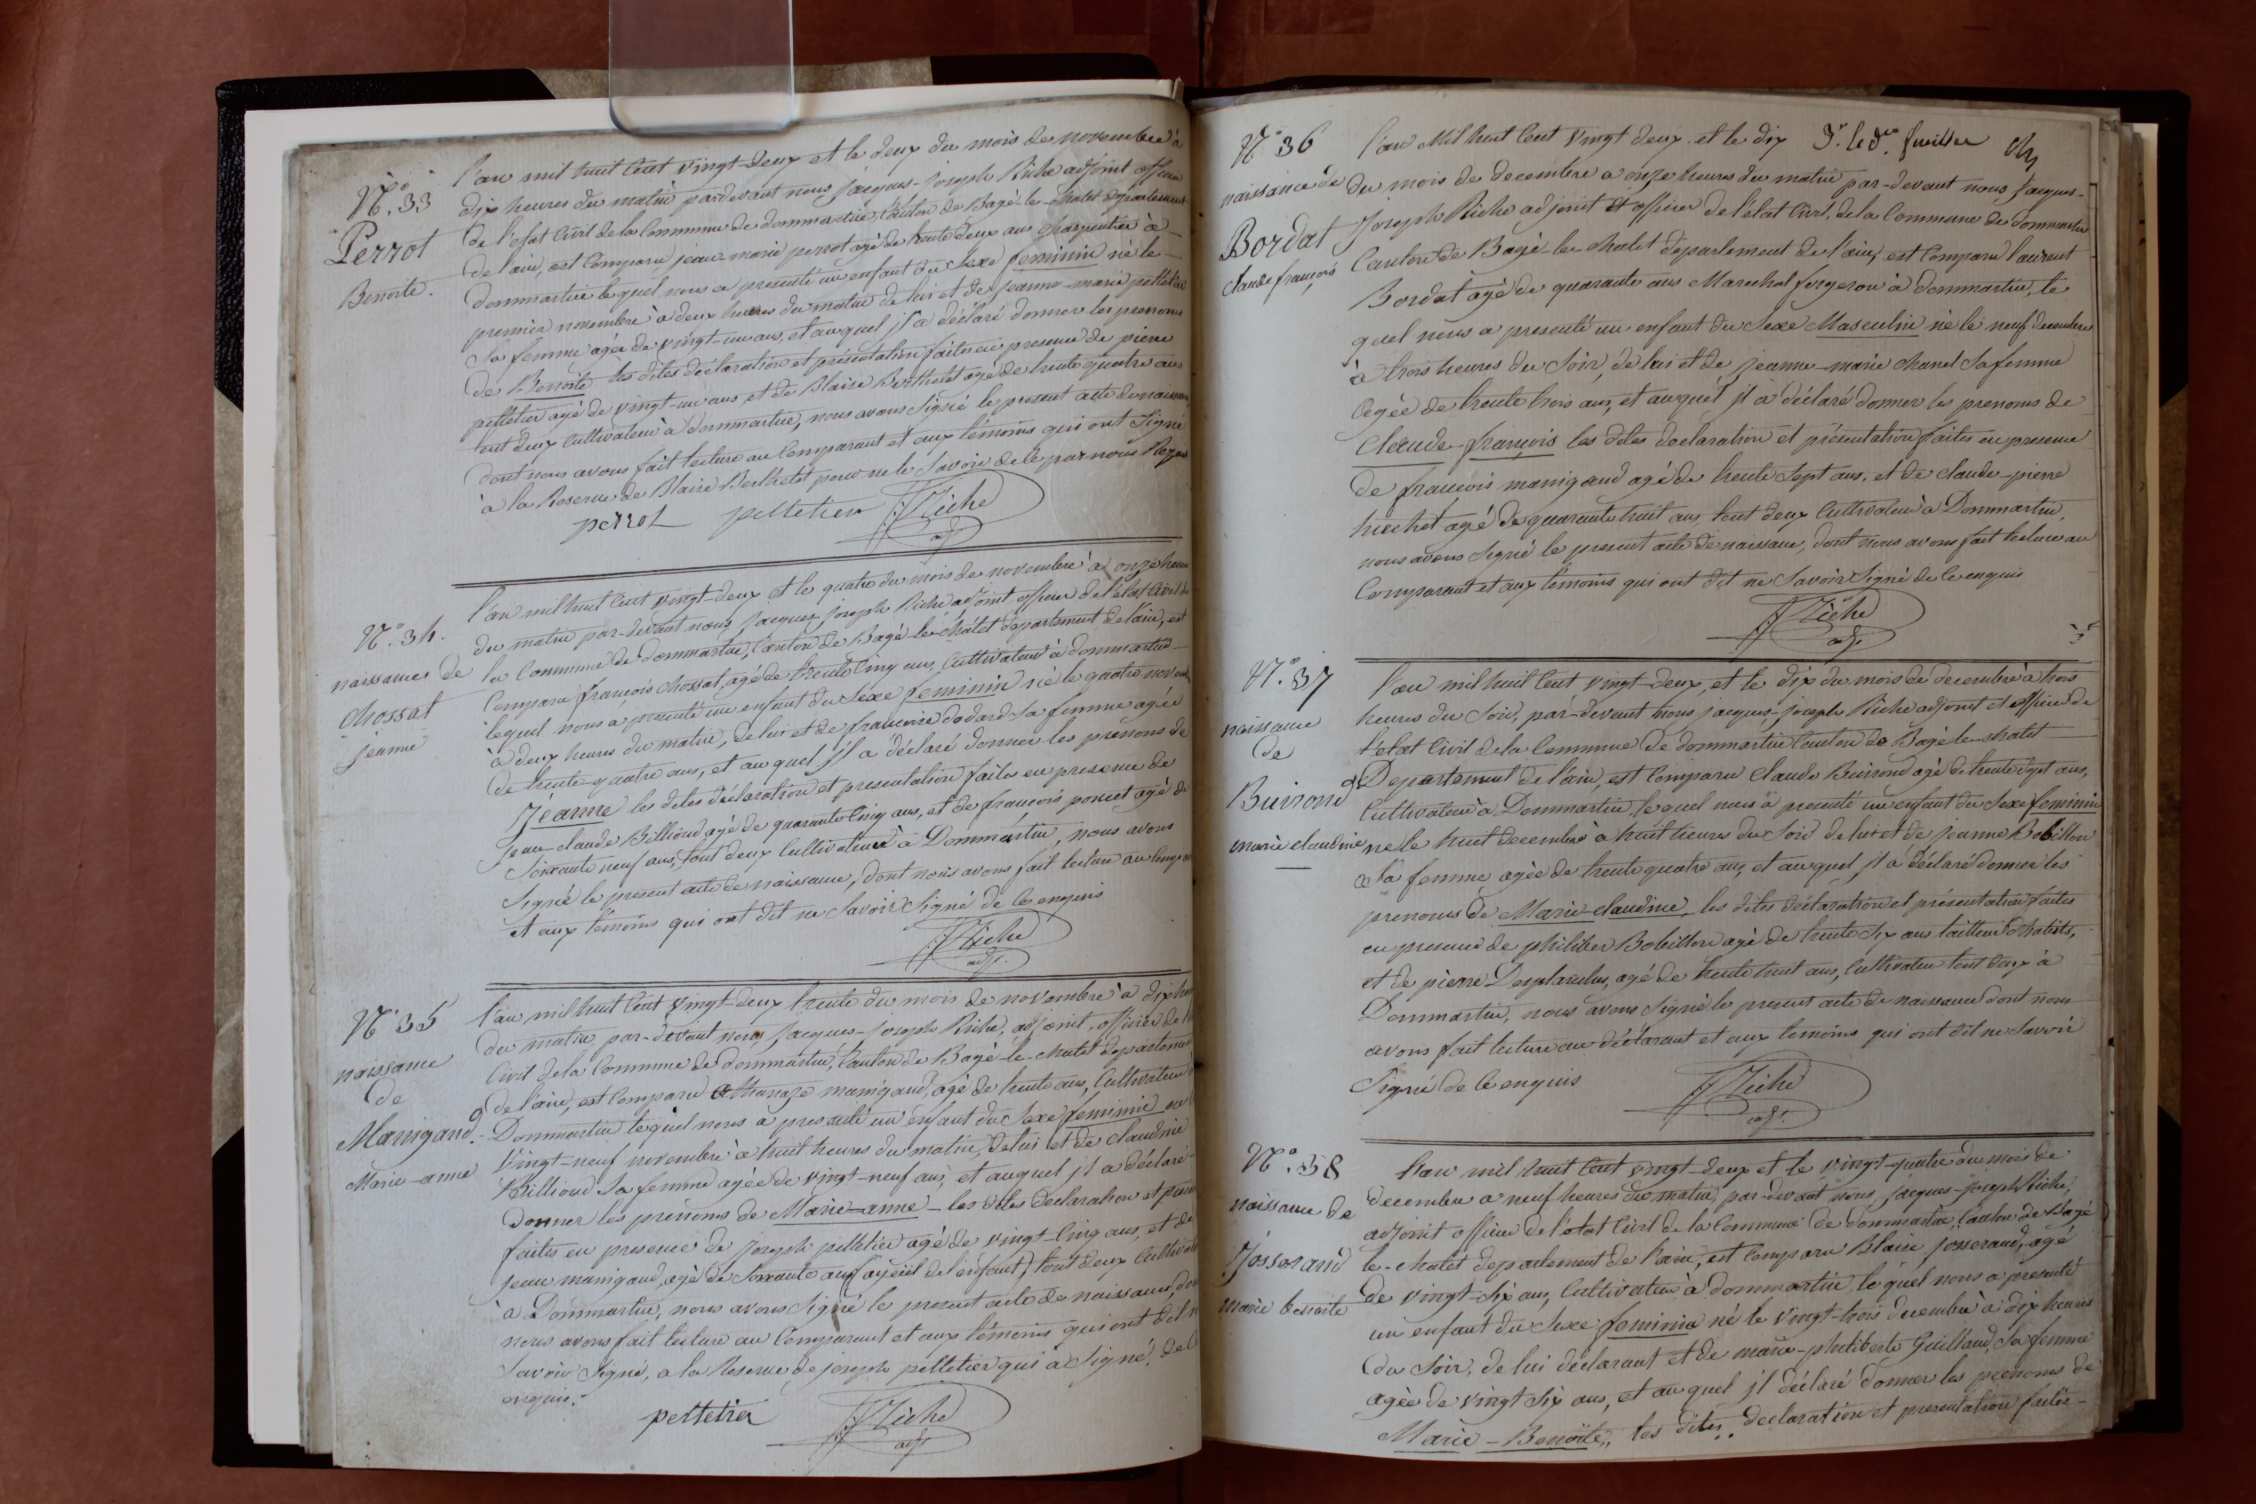 N.° 33
Perrot
Benoite.
l'an mil huit Cent vingt-deux et le deux du mois de novembre à
dix heures du matin pardevant nous jacques-joseph Riche adjoint officier
de l'etat Civil de la Commune de dommartin, Canton de Bagé-le-chatel departement
de l'ain, est Comparu jean-marie perrot agé de trente deux ans charpentier à
dommartin lequel nous a presenté un enfant du Sexe feminin né le
premier novembre à deux heures du matin de lui et de jeanne-marie pelletier
Sa femme agée de vingt-un ans, et auquel jl a déclaré donner les prenoms
de Benoite les dites déclaration et présentation faites en presence de pierre
pelletier agé de vingt-un ans et de Blaise Berthelet agé de trente quatre ans
tout deux Cultivateur à dommartin, nous avons Signé le present acte de naissance
dont nous avons fait lecture au Comparant et aux témoins qui ont Signé
à la Reserve de Blaise Berthelet pour ne le Savoir de le par nous
perrot pelletier JJRiche
adj.
N.° 34.
naissance de
chossat
jeanne
l'an mil huit Cent vingt-deux et le quatre du mois de novembre à onze heures
du matin par-devant nous jacques joseph Riche adjoint officier de l'etat Civil de
la Commune de dommartin, Canton de Bagé le-chatel departement de l'ain, est
Comparu françois chossat, agé de trente Cinq ans, Cultivateur à dommartin
lequel nous a presenté un enfant du Sexe feminin né le quatre novembre
à deux heures du matin, de lui et de françoise dodard Sa femme agée
de trente-quatre ans, et au quel jl a déclaré donner les prenoms de
Jeanne les dites déclaration et presentation faites en presence de
jean-claude Billioud agé de quarante Cinq ans, et de françois poncet agé de
Soixante neuf ans, tout deux Cultivateur à Dommartin, nous avons
Signé le present acte de naissance, dont nous avons fait lecture au Comparant
et aux temoins qui ont dit ne Savoir Signé de Ce enquis
JJRiche
adj.
N.° 35
naissance
de
Manigand.
Marie-anne
l'an mil huit Cent vingt-deux trente du mois de novembre à dix heures
du matin par-devant nous jacques-joseph Riche, adjoint officier de l'
Civil de la Commune de dommartin, Canton de Bagé-le-chatel departement
de l'ain, est Comparu athanaze manigaud, agé de trente ans, Cultivateur
Dommartin lequel nous a presenté un enfant du Sexe feminin né
vingt-neuf novembre à huit heures du matin, de lui et de claudine
Billioud Sa femme agée de vingt-neuf ans, et auquel jl a déclaré
donner les prénoms de Marie-anne les dites déclaration et
faites en presence de joseph pelletier agé de vingt-Cinq ans, et de
jean manigaud, agé de Soixante ans (ayeuil de l'enfant) tout deux
à Dommartin, nous avons Signé le present acte de naissance,
nous avons fait lecture au Comparant et aux témoins qui ont dit
Savoir Signé, a la Reserve de joseph pelletier qui a Signé. de
enquis.
pelletier JJRiche
adj.
N.° 36
naissance de
Bordat
claude françois
l'an Mil huit Cent vingt deux et le dix 3.e feuillet
du mois de decembre a onze heures du matin par-devant nous, jacques-
joseph Riche adjoint et officier de l'état Civil, de la Commune de dommartin
Canton de Bagé-le chatel département de l'ain, est Comparu laurent
Bordat agé de quarante ans Marechal forgeron à dommartin, le
quel nous a presenté un enfant du Sexe Masculin né le neuf decembre
à trois heures du Soir, de lui et de jeanne-marie chanel Sa femme
agée de trente trois ans, et auquel jl à déclaré donner les prenoms de
Claude-françois les dites declaration et présentation faites en presence
de françois manigaud agé de trente Sept ans, et de claude-pierre
agé de quarante huit ans, tout deux Cultivateur à Dommartin,
nous avons Signé le present acte de naissance, dont nous avons fait lecture au
Comparant et aux temoins qui ont dit ne Savoir Signé de Ce enquis
JJRiche
adj.
N.° 37
naissance
de
Buirond
marie claudine
l'an mil huit Cent vingt-deux, et le dix du mois de decembre à trois
heures du Soir, par-devant nous jacques joseph Riche adjoint et officier de
l'etat Civil de la Commune de dommartin Canton de Bagé le-chatel
Departement de l'ain, est Comparu claude Buirond agé de trente Sept ans,
Cultivateur à Dommartin, lequel nous à presenté un enfant du Sexe feminin
né le huit decembre à huit heures du Soir de lui et de jeanne Bobillon
Sa femme agée de trente quatre ans, et auquel jl a déclaré donner les
prenoms de Marie-claudine, les dites déclaration et présentation faites
en presence de philiber Bobillon agé de trente Six ans tailleur d'habits,
et de pierre Desplanches, agé de trente huit ans, Cultivateur tout deux à
Dommartin, nous avons Signé le present acte de naissance dont nous
avons fait lecture au déclarant et aux temoins qui ont dit ne Savoir
Signé de Ce enquis
JJRiche
adj.
N.° 38
naissance de
Josserand
marie benoite
l'an mil huit Cent vingt-deux et le vingt-quatre du mois de
decembre a neuf heures du matin, par-devant nous, jacques-joseph Riche,
adjoint officier de l'etat Civil de la Commune de dommartin, Canton de Bagé
le-chatel departement de l'ain, est Comparu Blaise josserand, agé
de vingt-Six ans, Cultivateur à dommartin le quel nous a presenté
un enfant du Sexe feminin né le vingt-trois decembre à dix heures
du Soir, de lui déclarant et de marie-philiberte Guilland Sa femme
agée de vingt Six ans, et au quel jl déclaré donner les prenoms de
Marie-Benoite, les dites declaration et presentation faites